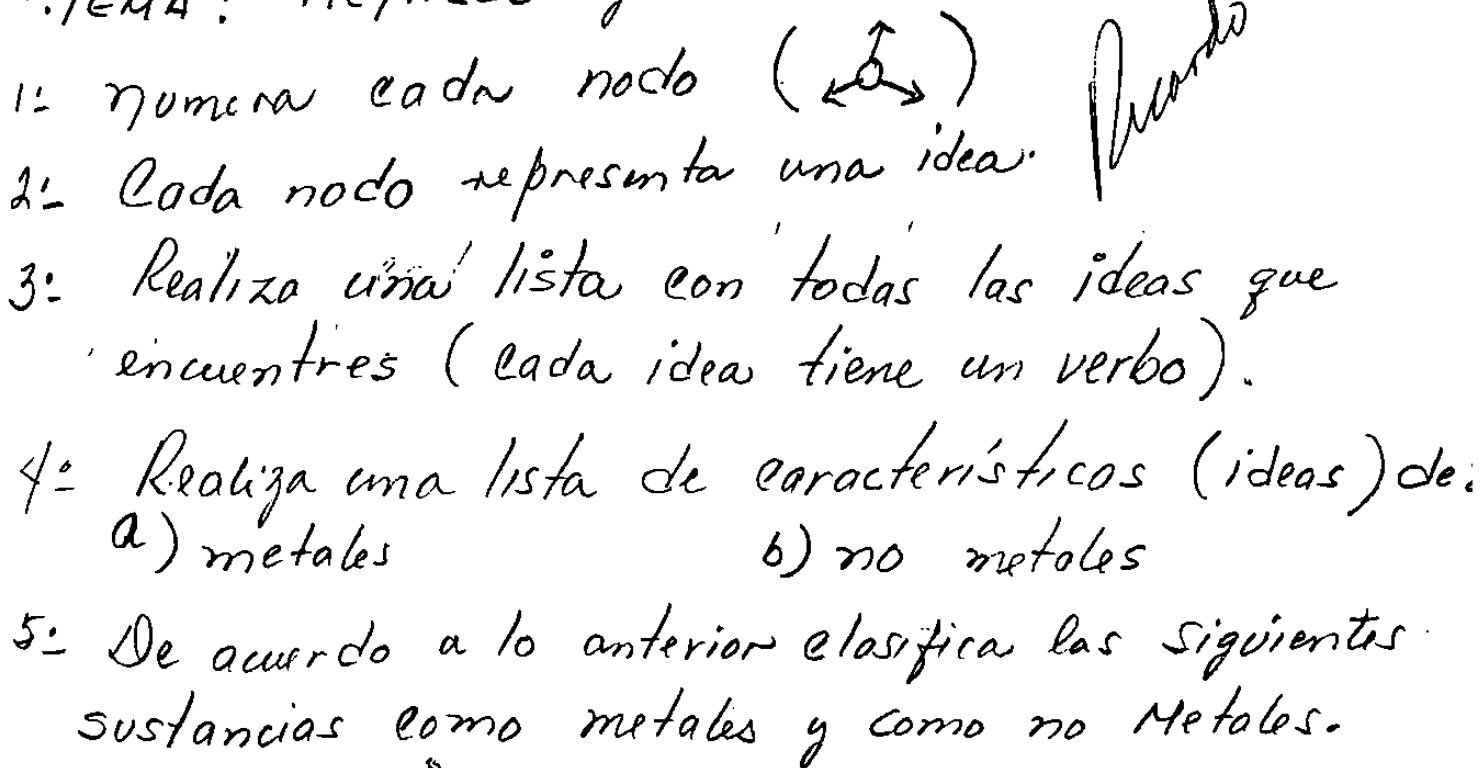 TEMA:
1- numera cada nodo ( )
Ricardo
2- Cada nodo representa una idea.
3- Realiza una lista con todas las ideas que
encuentres (cada idea tiene un verbo).
4- Realiza una lista de características (ideas) de:
a) metales b) no metales
5- De acuerdo a lo anterior clasifica las siguientes
sustancias como metales y como no Metales.